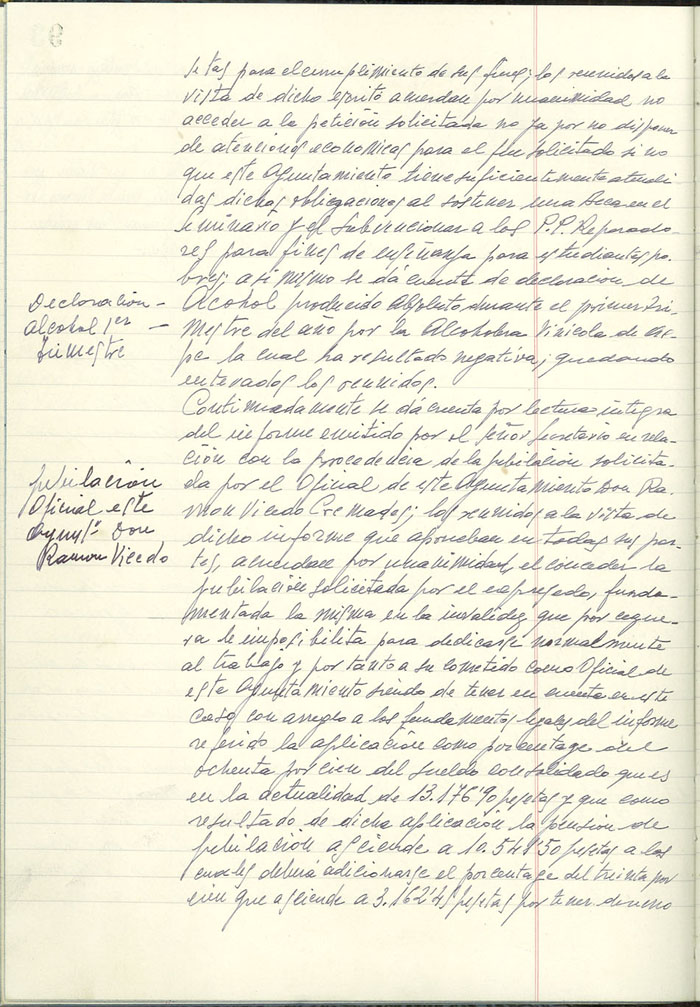 setas para el cumplimiento de sus fines; los reunidos a la
vista de dicho escrito acuerdan por unanimidad no
acceder a la petición solicitada no ya por no disponer
de atenciones economicas para el fin solicitado si no
que este Ayuntamiento tiene suficientemente atendi
das dichas obligaciones al sostener una Beca en el
Seminario y el subvencionar a los P.P. Reparado-
res para fines de enseñanza para estudiantes po-
bres; asi mismo se dá cuenta de declaracion de
Declaración -
alcohol 1er -
Trimestre
Alcohol producido absoluto durante el primer tri-
mestre del año por la Alcoholera Vinicola de
la cual ha resultado negativa; quedando
enterados los reunidos.
Continuadamente se dá cuenta por lectura integra
del informe emitido por el señor Secretario en rela-
ción con la procedencia de la jubilación solicita-
Jubilación
Oficial este
Aynytº Don
Ramon Vicedo
da por el Oficial de este Ayuntamiento Don Ra-
mon Vicedo Cremades; los reunidos a la vista de
dicho informe que aprueban en todas sus par-
tes, acuerdan por unanimidad, el conceder la
jubilación solicitada por el expresado, funda-
mentada la misma en la invalidez que por cegue-
ra le imposibilita para dedicarse normalmente
al trabajo y por tanto a su cometido como Oficial de
este Ayuntamiento siendo de tener en cuenta en este
caso con arreglo a los fundamentos legales del informe
referido la aplicación como porcentage del
ochenta por cien del sueldo consolidado que es
en la actualidad de 13.176'90 pesetas y que como
resultado de dicha aplicación la pension de
jubilación asciende a 10.541'50 pesetas a las
cuales deberá adicionarse el porcentage del treinta por
cien que asciende a 3.162'45 pesetas por tener derecho